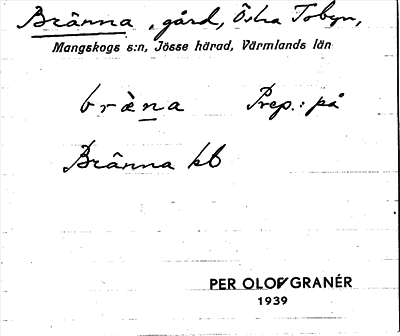 Bränna, gård, Östra Tobyn,
Mangskogs s:n, Jösse härad, Värmlands län
bràna Prep.: på
Bränna kb
PER OLOF GRANÉR
1939